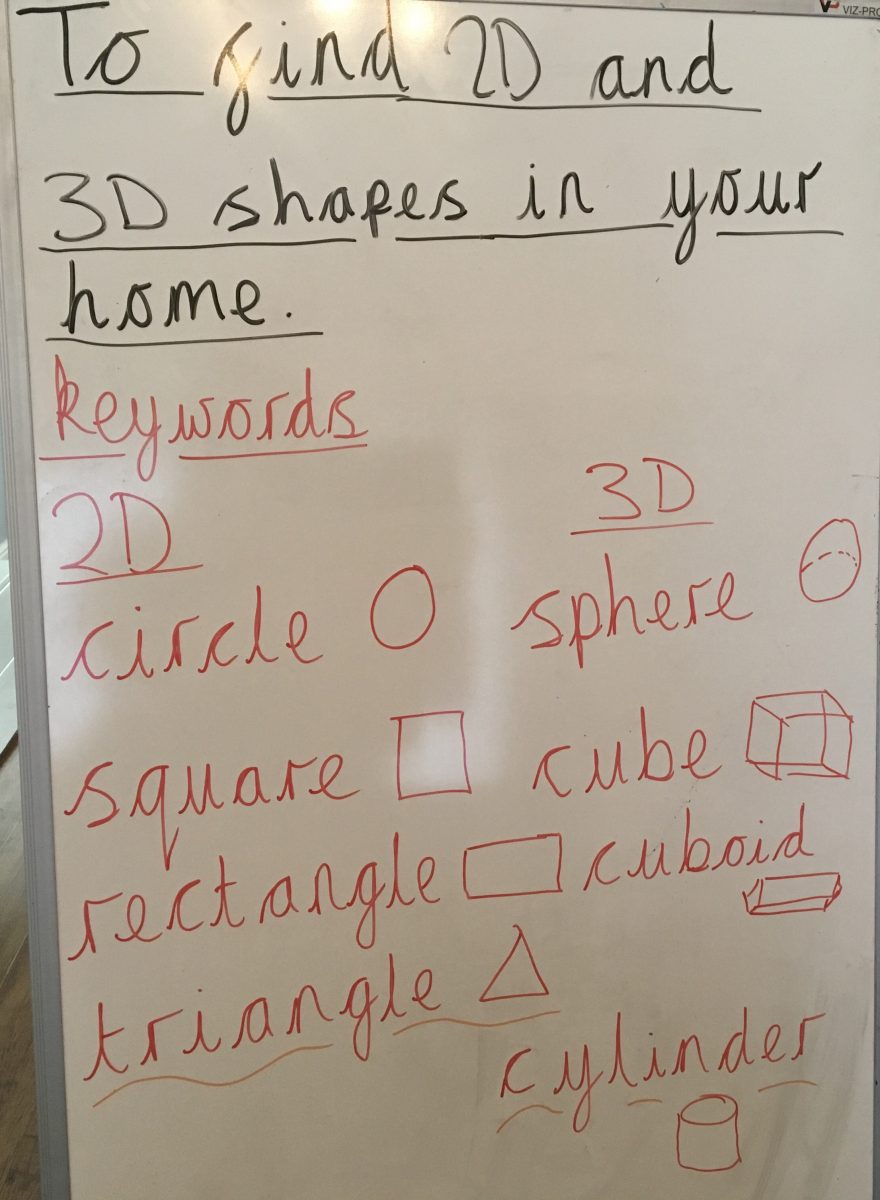 VIZ-PRO
To find 2D and
3D shapes in your
home.
keywords
2D
circle
square
rectangle
triangle
3D
sphere
cube
cuboid
cylinder